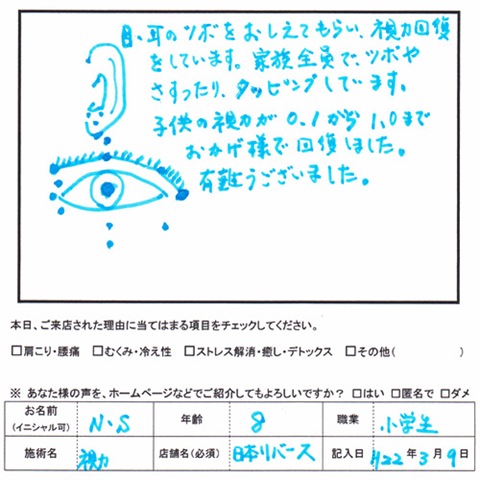 目、耳のツボをおしえてもらい、視力回復
をしています。家族全員で、ツボや
さすったり、タッピングしています。
子供の視力が0.1から1.0まで
おかげ様で回復しました。
有難うございました。
本日、ご来店された理由に当てはまる項目をチェックしてください。
□肩こり・腰痛 □むくみ・冷え性 □ストレス解消・癒し・デトックス □その他( )
※ あなた様の声を、ホームページなどでご紹介してもよろしいですか？ □はい □匿名で □ダメ
お名前 (イニシャル可) N.S 年齢 8 職業 小学生
施術名 視力 店舗名(必須) 日本リバース 記入日 H22年3月9日